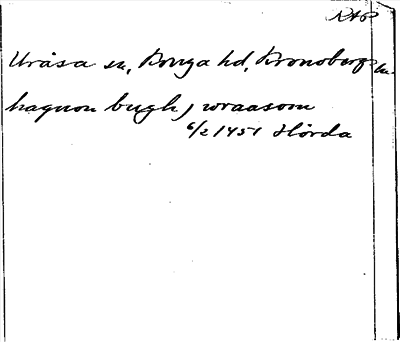 RAP
Uråsa sn, Konga hd, Kronobergs ln.
haquon bugh j wraasom
6/2 1451 Hörda